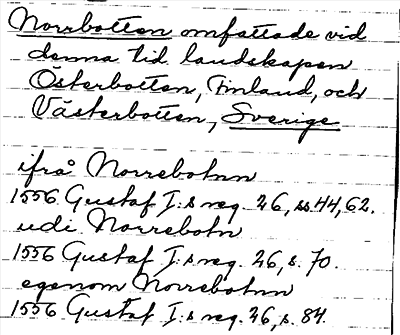 Norrbotten omfattade vid
denna tid landskapen
Österbotten, Finland, och
Västerbotten, Sverige
ifrå Norrebotnn
1556 Gustaf I:s reg. 26, ss 44, 62.
udi Norrebotn
1556 Gustaf I:s reg. 26, s. 70.
egenom Norrebotnn
1556 Gustaf I:s reg. 26, s. 84.